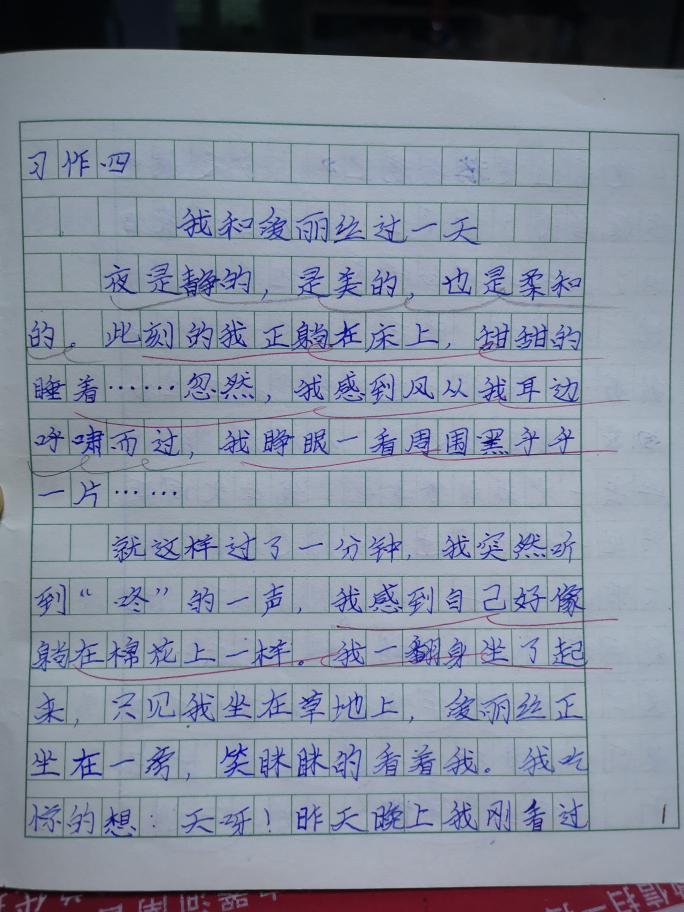 习作四
我和爱丽丝过一天
夜是静的，是美的，也是柔和
的。此刻的我正躺在床上，甜甜的
睡着……忽然，我感到风从我耳边
呼啸而过，我睁眼一看周围黑乎乎
一片……
就这样过了一分钟，我突然听
到“咚”的一声，我感到自己好像
躺在棉花上一样。我一翻身坐了起
来，只见我坐在草地上，爱丽丝正
坐在一旁，笑眯眯的看着我。我吃
惊的想：天呀！昨天晚上我刚看过
1